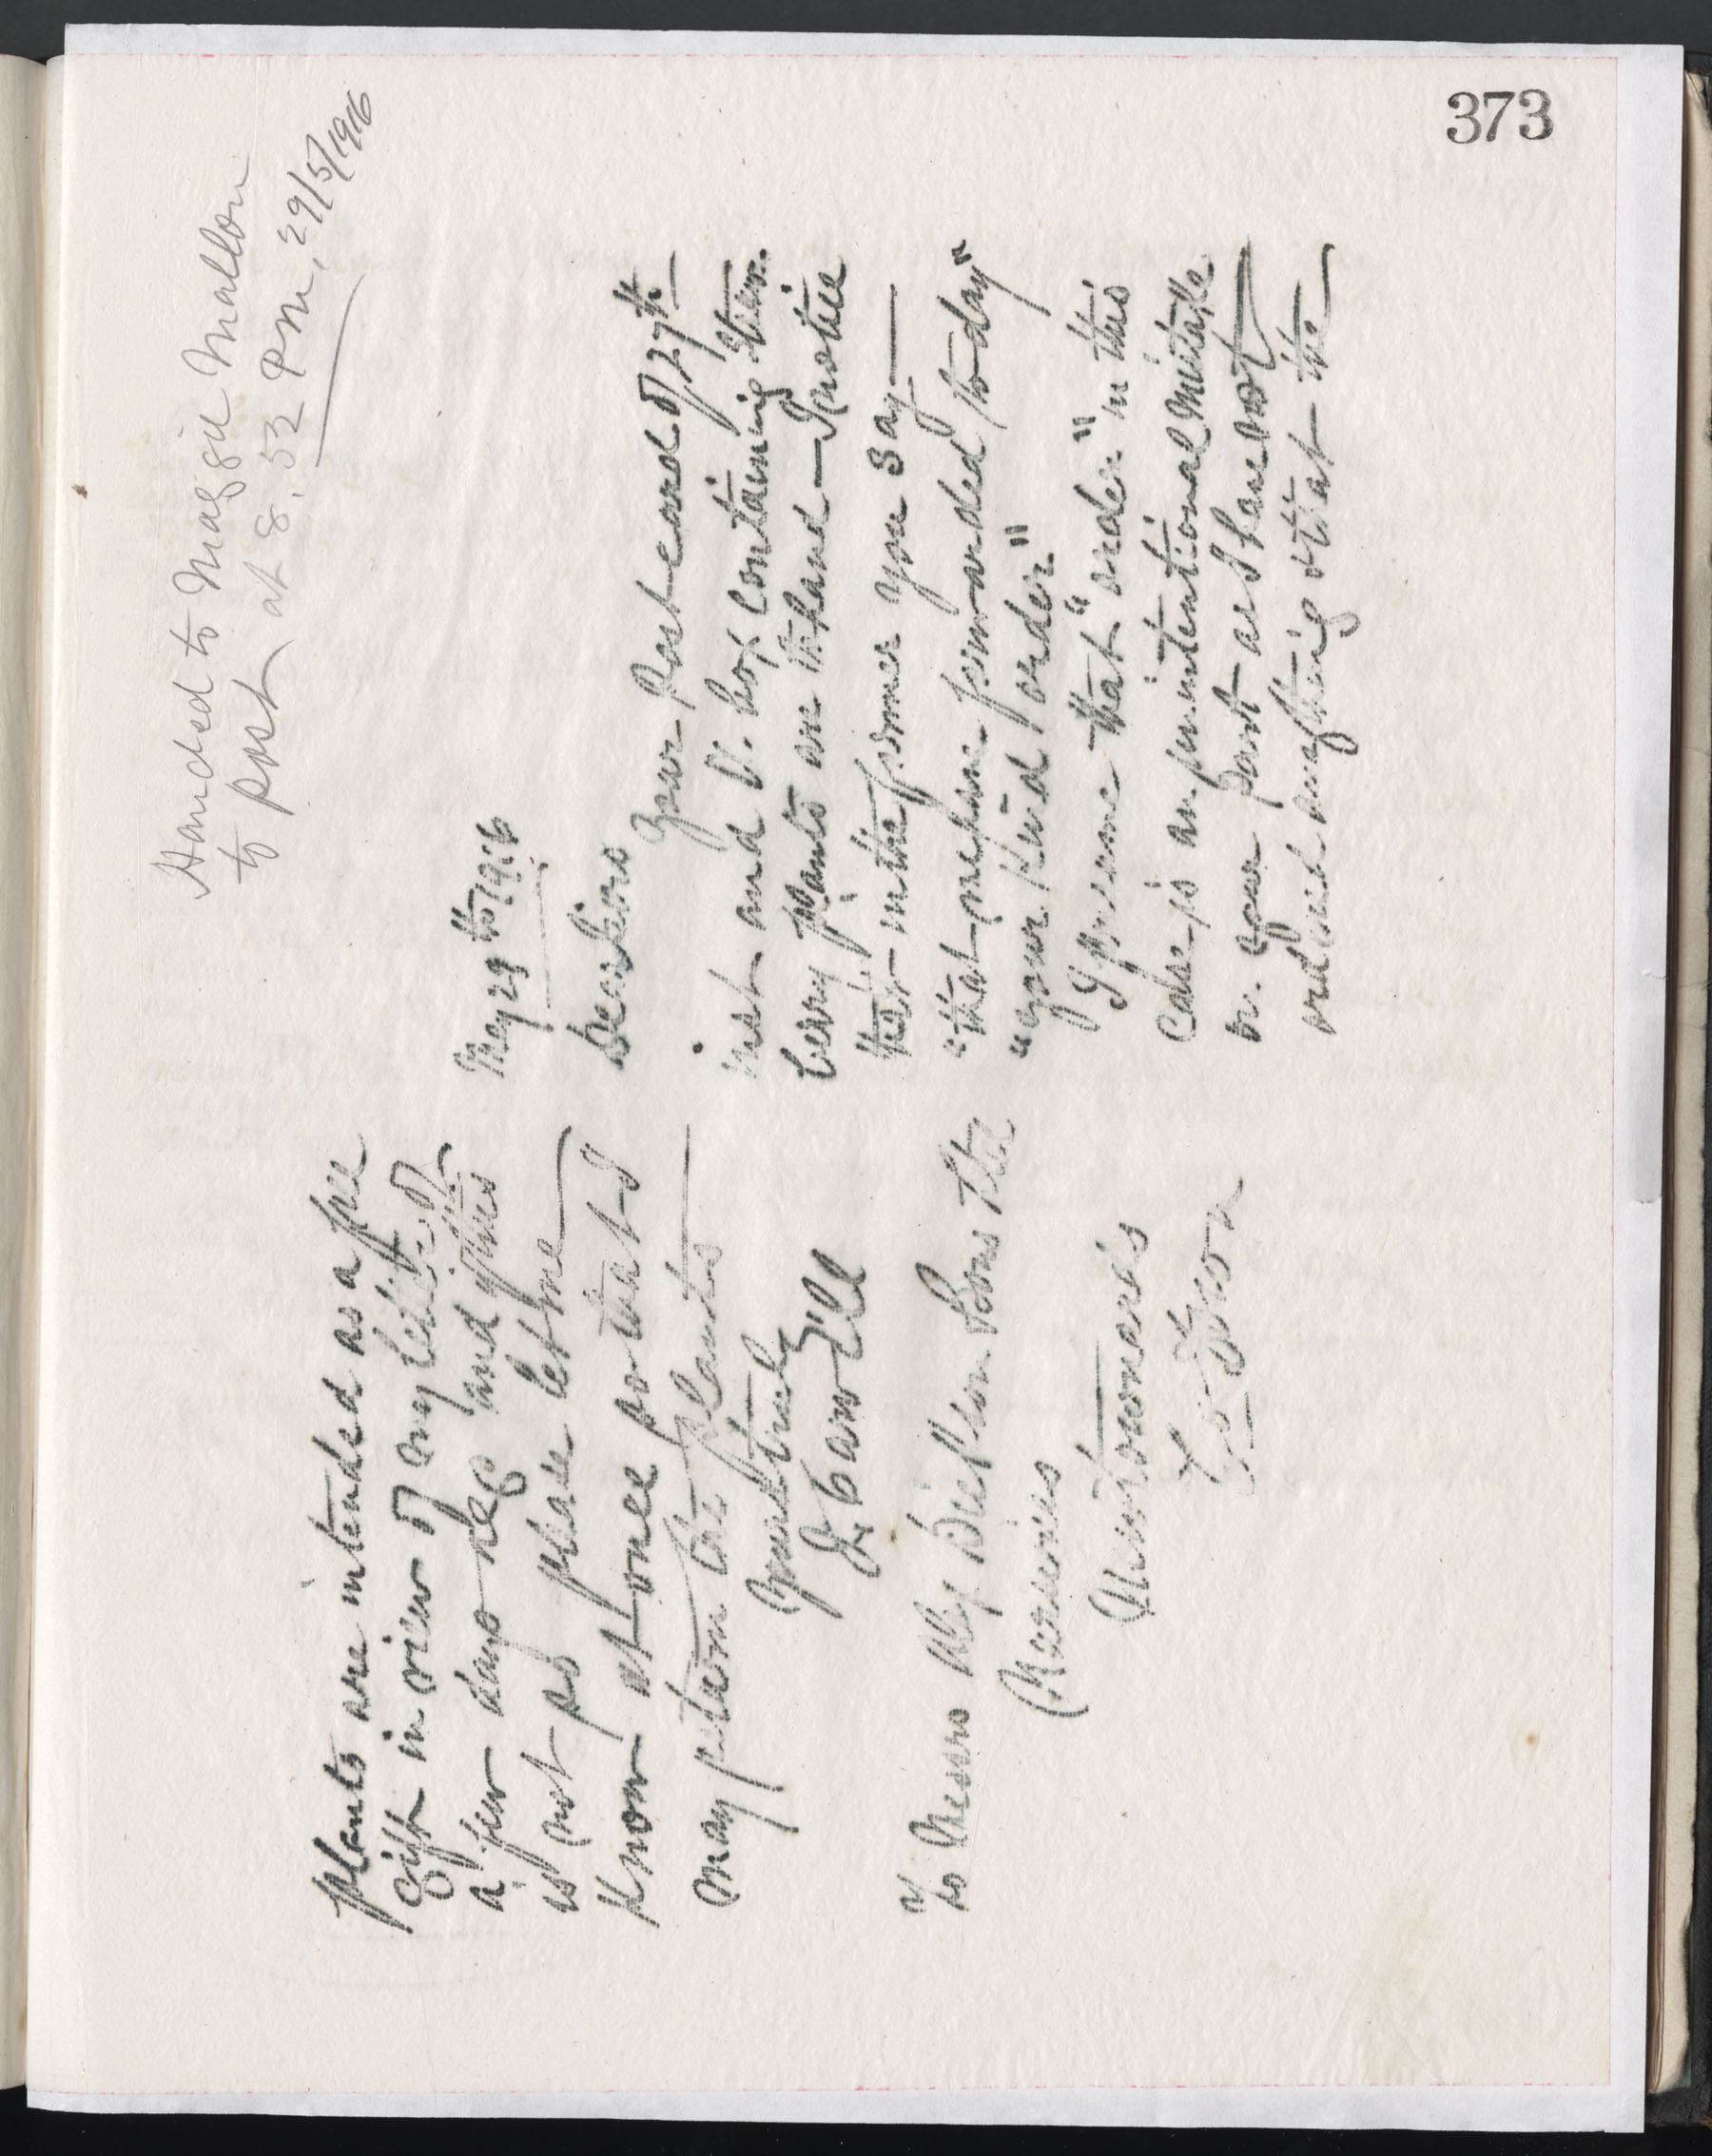 373
Handed to Maggie Mallon
to post at 8.52 PM, 29/5/1916
May 29th 1916
Dear Sirs
Your Post card of 27th
inst and V. box containing straw-
berry plants are to hand — I notice
that in the former you say —
"that we have forwarded to day"
"your kind order"
I presume that "order" in this
case is an unintentional mistake
on your part as I have not
ordered anything & that the
plants are intended as a free
gift in view of my letter of
a few days ago and if this
is not so please let me
know at once so that I
may return the plants
Yours truly
To Messrs Alex Dickson Sons Ltd
Nurseries
Newtownards
Co Down